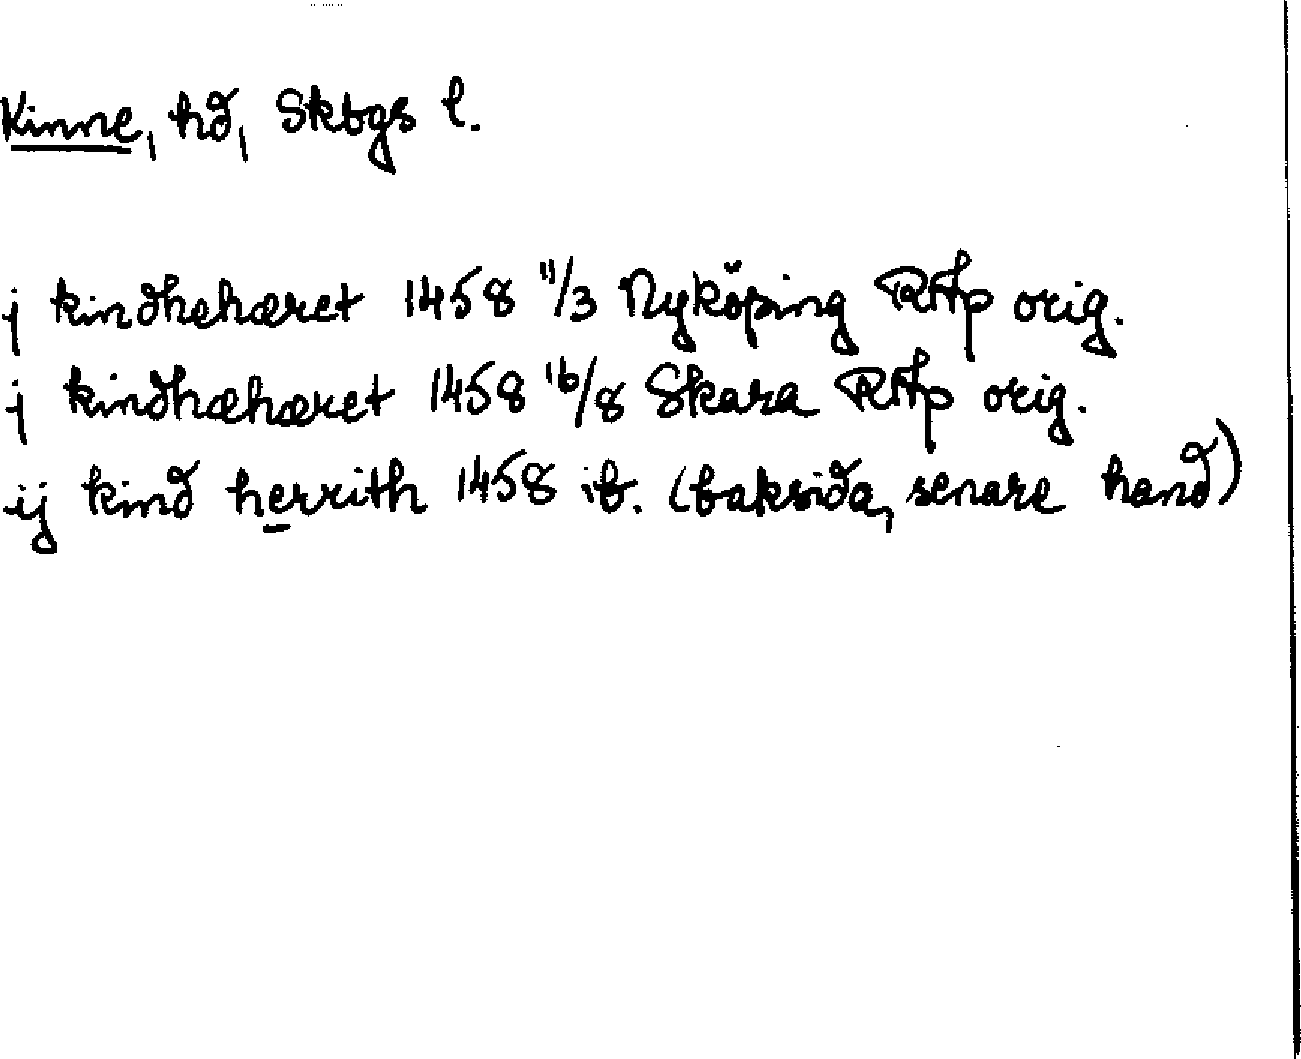 Kinne, hd, Skbgs l.
j kindhehæret 1458 11/3 Nyköping RAp orig.
j kindhæhæret 1458 16/8 Skara RAp orig.
ij kind herrith 1458 ib. (baksida, senare hand)